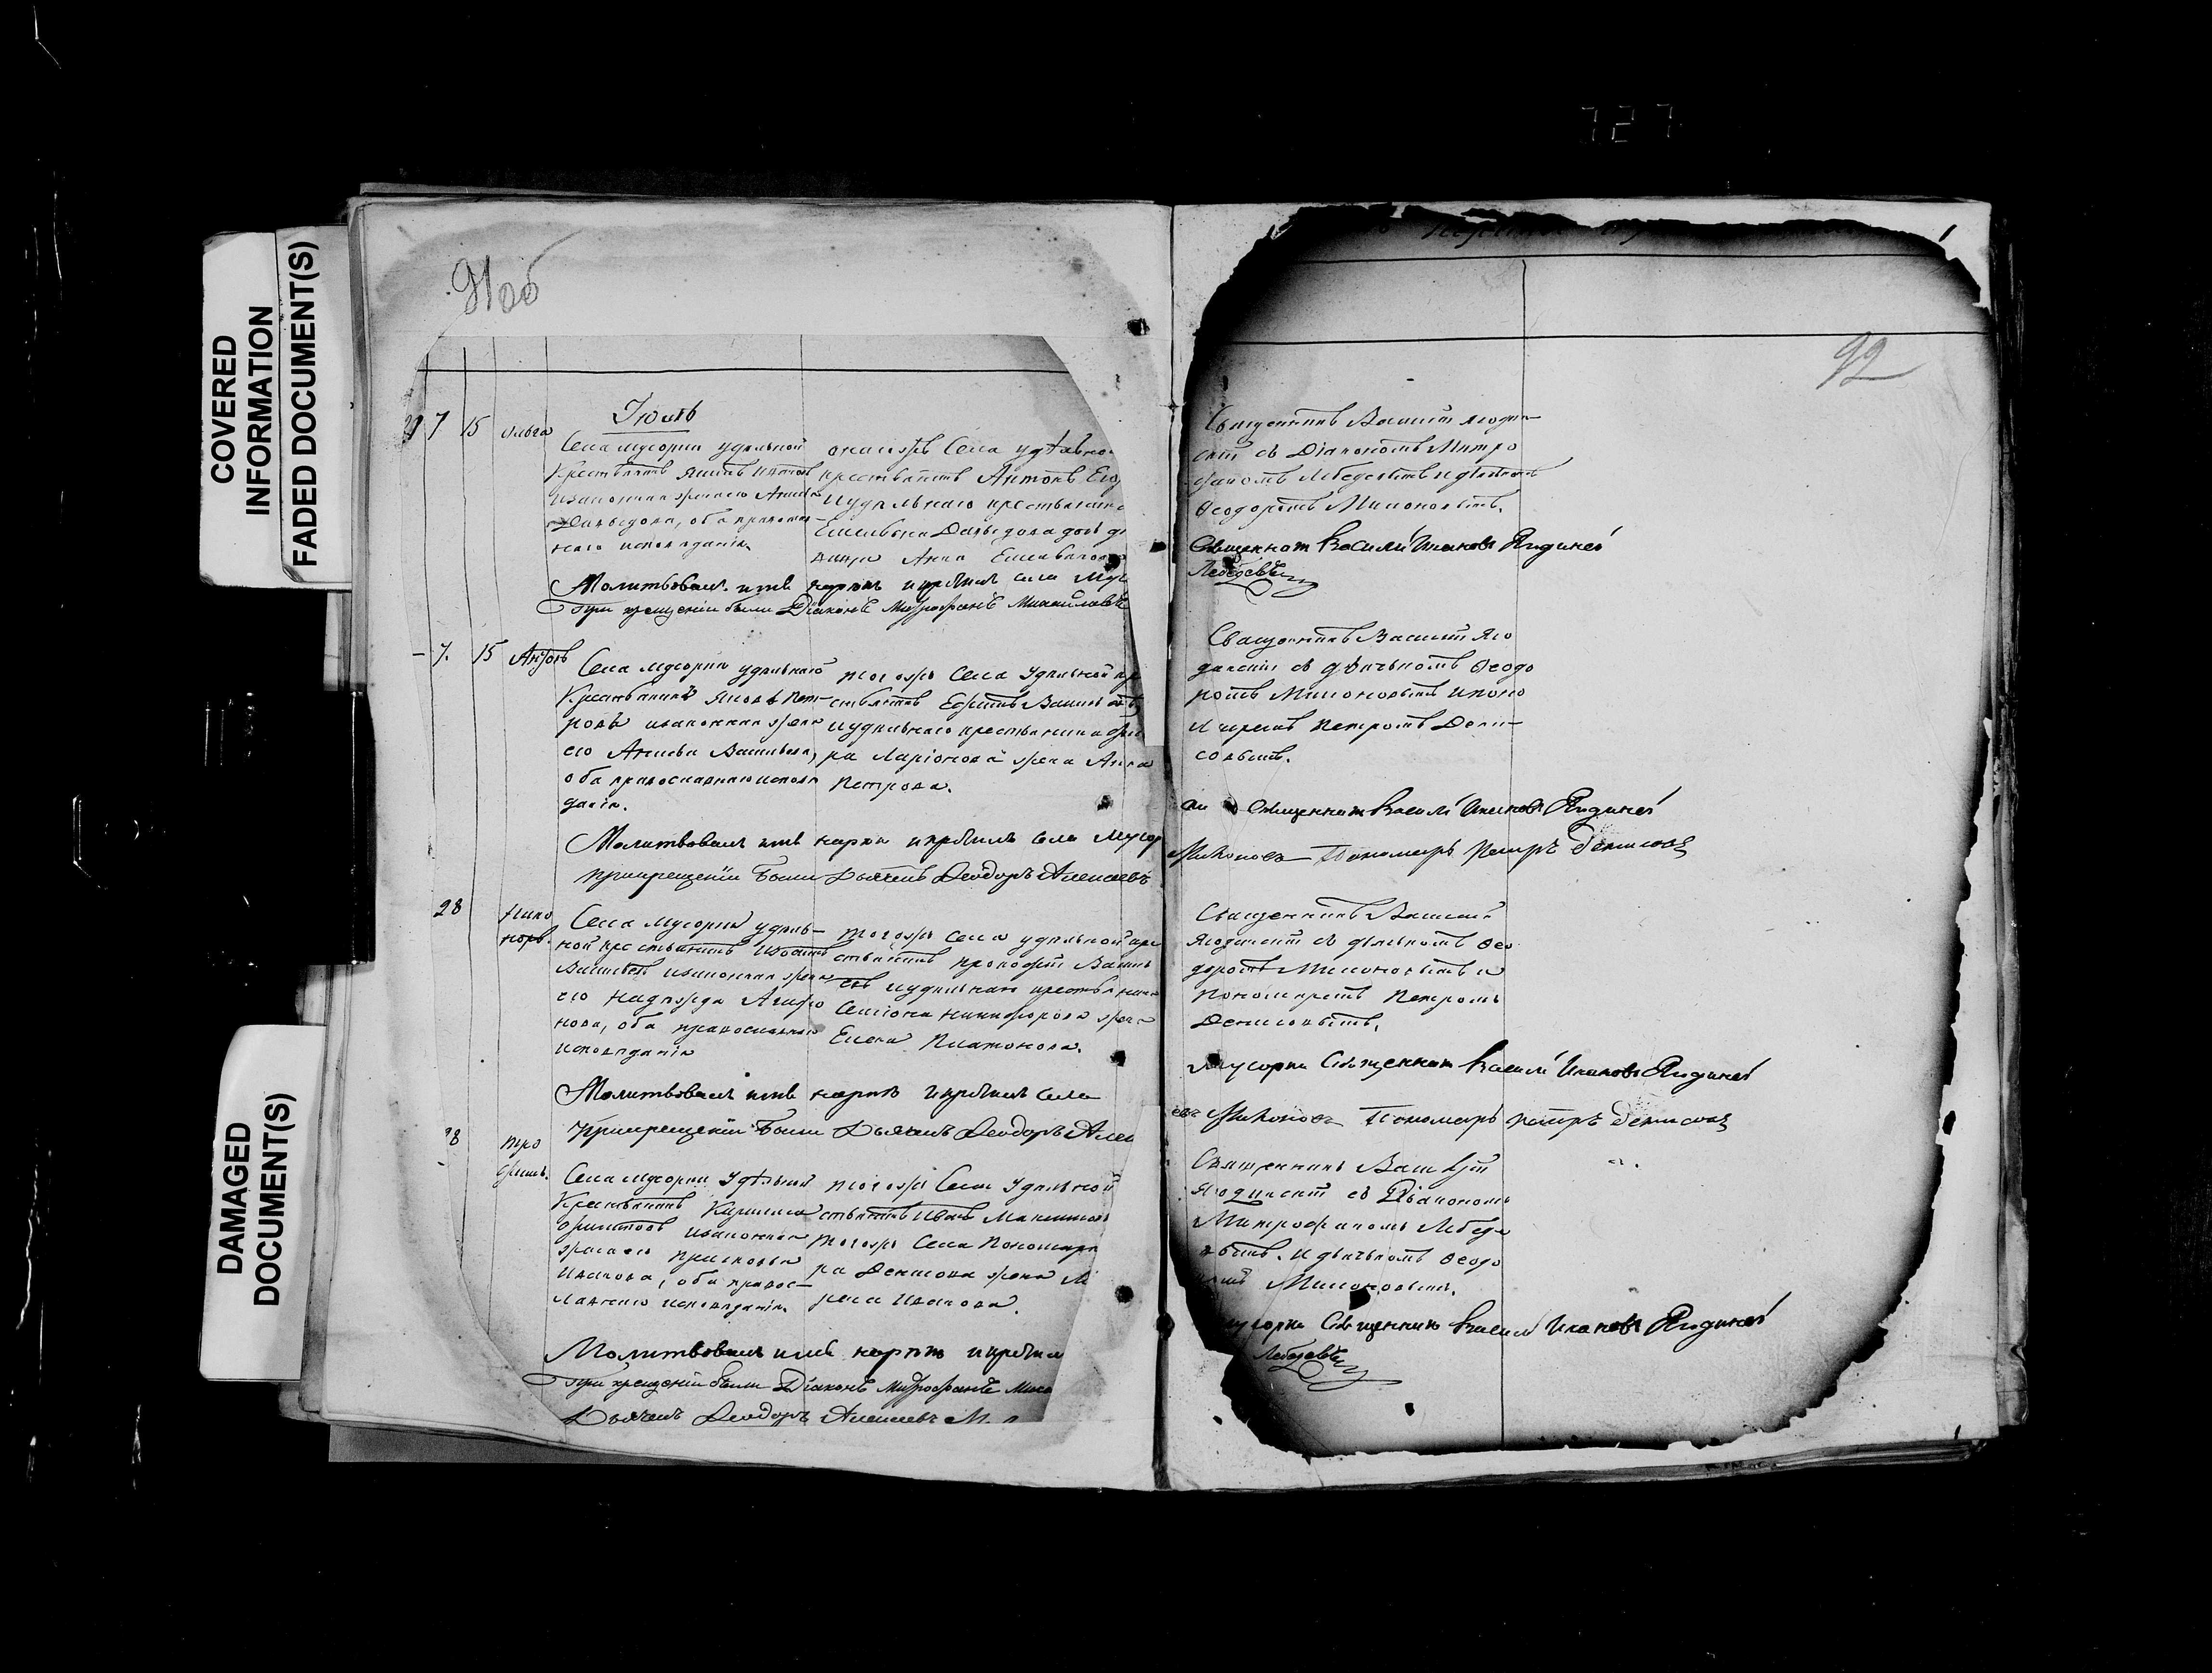 727
COVERED
INFORMATION
FADED DOCUMENT(S)
DAMAGED
DOCUMENT(S)
91об
Июль
7 15 Ольга
Села Мусорки удѣльной
крестьянинъ
законная жена его
Давыдова, оба православ-
наго исповѣданія.
села удѣльно
крестьянинъ Антонъ Его
и удѣльнаго крестьянина
Емельяна Давыдова дочь дѣ
вица Анна Емельянова
Молитвовалъ имя нарекъ и крестилъ села Мус
При крещеніи были Діаконъ Митрофанъ Михайловъ
7. 15 Антонъ
Села Мусорки удѣльной
крестьянинъ Яковъ Пет-
ровъ и законная жена
его Васильева,
оба православнаго исповѣ
данія.
того же села удѣльной кре
стьянинъ Ефимъ Васильевъ
и удѣльнаго крестьянина
ра Ларіонова жена Анна
Петрова.
Молитвовалъ имя нарекъ и крестилъ села Мусор
При крещеніи были Дьячекъ Ѳеодоръ Алексеевъ
28 Ника
норъ.
Села Мусорки удѣль-
ной крестьянинъ
Васильевъ и законная жена
его Надежда Агафо
нова, оба православнаго
исповѣданія
того же села удѣльной кре
стьянинъ Прокофій Василь
евъ и удѣльнаго крестьянина
Семіона Никифорова жена
Елена Платонова.
Молитвовалъ имя нарекъ и крестилъ села
При крещеніи были Дьячекъ Ѳеодоръ Алек
28 Тро
фимъ.
Села Мусорки удѣльной
крестьянинъ Кирилла
законная
жена его Прасковья
Иванова, оба правос-
лавнаго исповѣданія.
того же села удѣльной
стьянинъ Иванъ Максимовъ
того же села пономаря
ра Денисова жена М
Иванова.
Молитвовалъ имя нарекъ и крестил
При крещеніи были Діаконъ Митрофанъ Миха
Дьячекъ Ѳеодоръ Алексеевъ
92
Священникъ Василій Ягодин-
скій съ Діакономъ Митро
фаномъ Лебедевымъ и дьячкомъ
Ѳеодоромъ Милоновымъ.
Священникъ Василій Ивановъ Ягодинскій
Лебедевъ
Священникъ Василій Яго
динскій съ дьячкомъ Ѳеодо
ромъ Милоновымъ и поно
маремъ Петромъ Дени-
совымъ.
Священникъ Василій Ивановъ Ягодинскій
Милоновъ Пономарь Петръ Денисовъ
Священникъ Василій
Ягодинскій съ дьячкомъ Ѳео
доромъ Милоновымъ и
пономаремъ Петромъ
Денисовымъ.
Мусорки Священникъ Василій Ивановъ Ягодинскій
Милоновъ Пономарь Петръ Денисовъ
Священникъ Василій
Ягодинскій съ Діакономъ
Митрофаномъ Лебеде
вымъ. и дьячкомъ Ѳеодо
Милоновымъ.
Священникъ Василій Ивановъ Ягодинскій
Лебедевъ